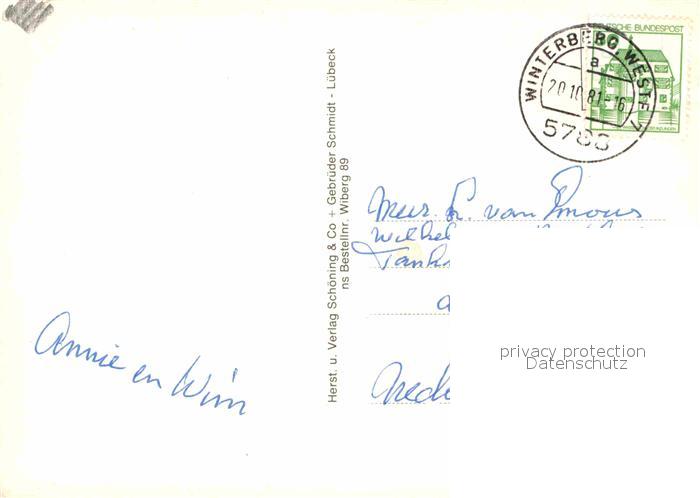 DEUTSCHE BUNDESPOST
WINTERBERG, WESTF 7
a
20.10.81-16
5788
Herst. u. Verlag Schöning & Co + Gebrüder Schmidt - Lübeck
ns Bestellnr. Wiberg 89
Mevr. van
Annie en Wim
privacy protection
Datenschutz